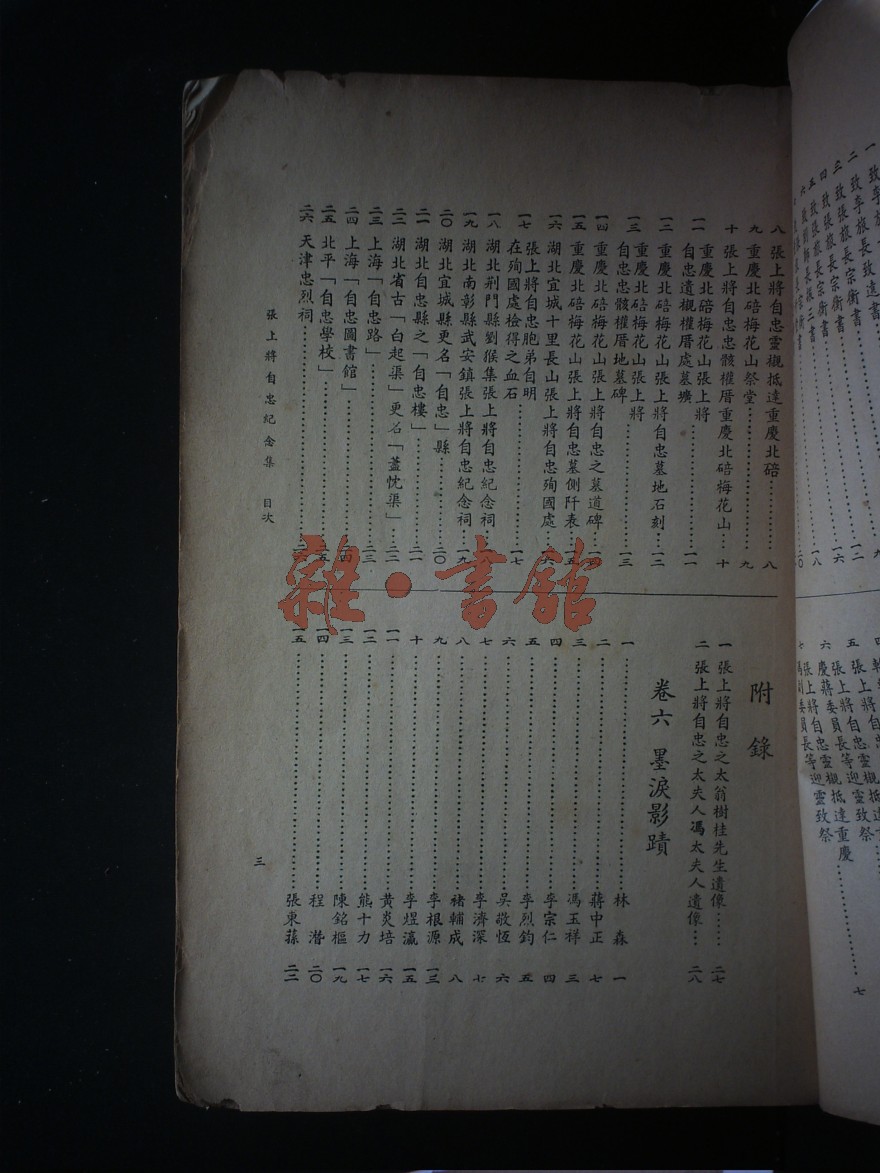 八 張上將自忠靈櫬抵達重慶北碚……八
九 重慶北碚梅花山祭堂……九
十 張上將自忠忠骸權厝重慶北碚梅花山……十
一一 重慶北碚梅花山張上將
自忠遺櫬權厝處墓壙……一一
一二 重慶北碚梅花山張上將自忠墓地石刻……一二
一三 重慶北碚梅花山張上將
自忠忠骸權厝地墓碑……一三
一四 重慶北碚梅花山張上將自忠之墓道碑……一四
一五 重慶北碚梅花山張上將自忠墓側阡表……一五
一六 湖北宜城十里長山張上將自忠殉國處……一六
一七 張上將自忠胞弟自明
在殉國處檢得之血石……一七
一八 湖北荆門縣劉猴集張上將自忠紀念祠……一八
一九 湖北南彰縣武安鎮張上將自忠紀念祠……一九
二〇 湖北宜城縣更名「自忠」縣……二〇
二一 湖北自忠縣之「自忠樓」……二一
二二 湖北省古「白起渠」更名「藎忱渠」……二二
二三 上海「自忠路」……二三
二四 上海「自忠圖書館」……二四
二五 北平「自忠學校」……二五
二六 天津忠烈祠……二六
附錄
一 張上將自忠之太翁樹桂先生遺像……二七
二 張上將自忠之太夫人馮太夫人遺像……二八
卷六 墨淚影蹟
一……林森 一
二……蔣中正 七
三……馮玉祥 三
四……李宗仁 四
五……李烈鈞 五
六……吳敬恆 六
七……李濟深 七
八……褚輔成 八
九……李根源 一三
十……李煜瀛 一五
一一……黃炎培 一六
一二……熊十力 一七
一三……陳銘樞 一九
一四……程潛 二〇
一五……張東蓀 二二
張上將自忠紀念集 目次
三
雜·書館